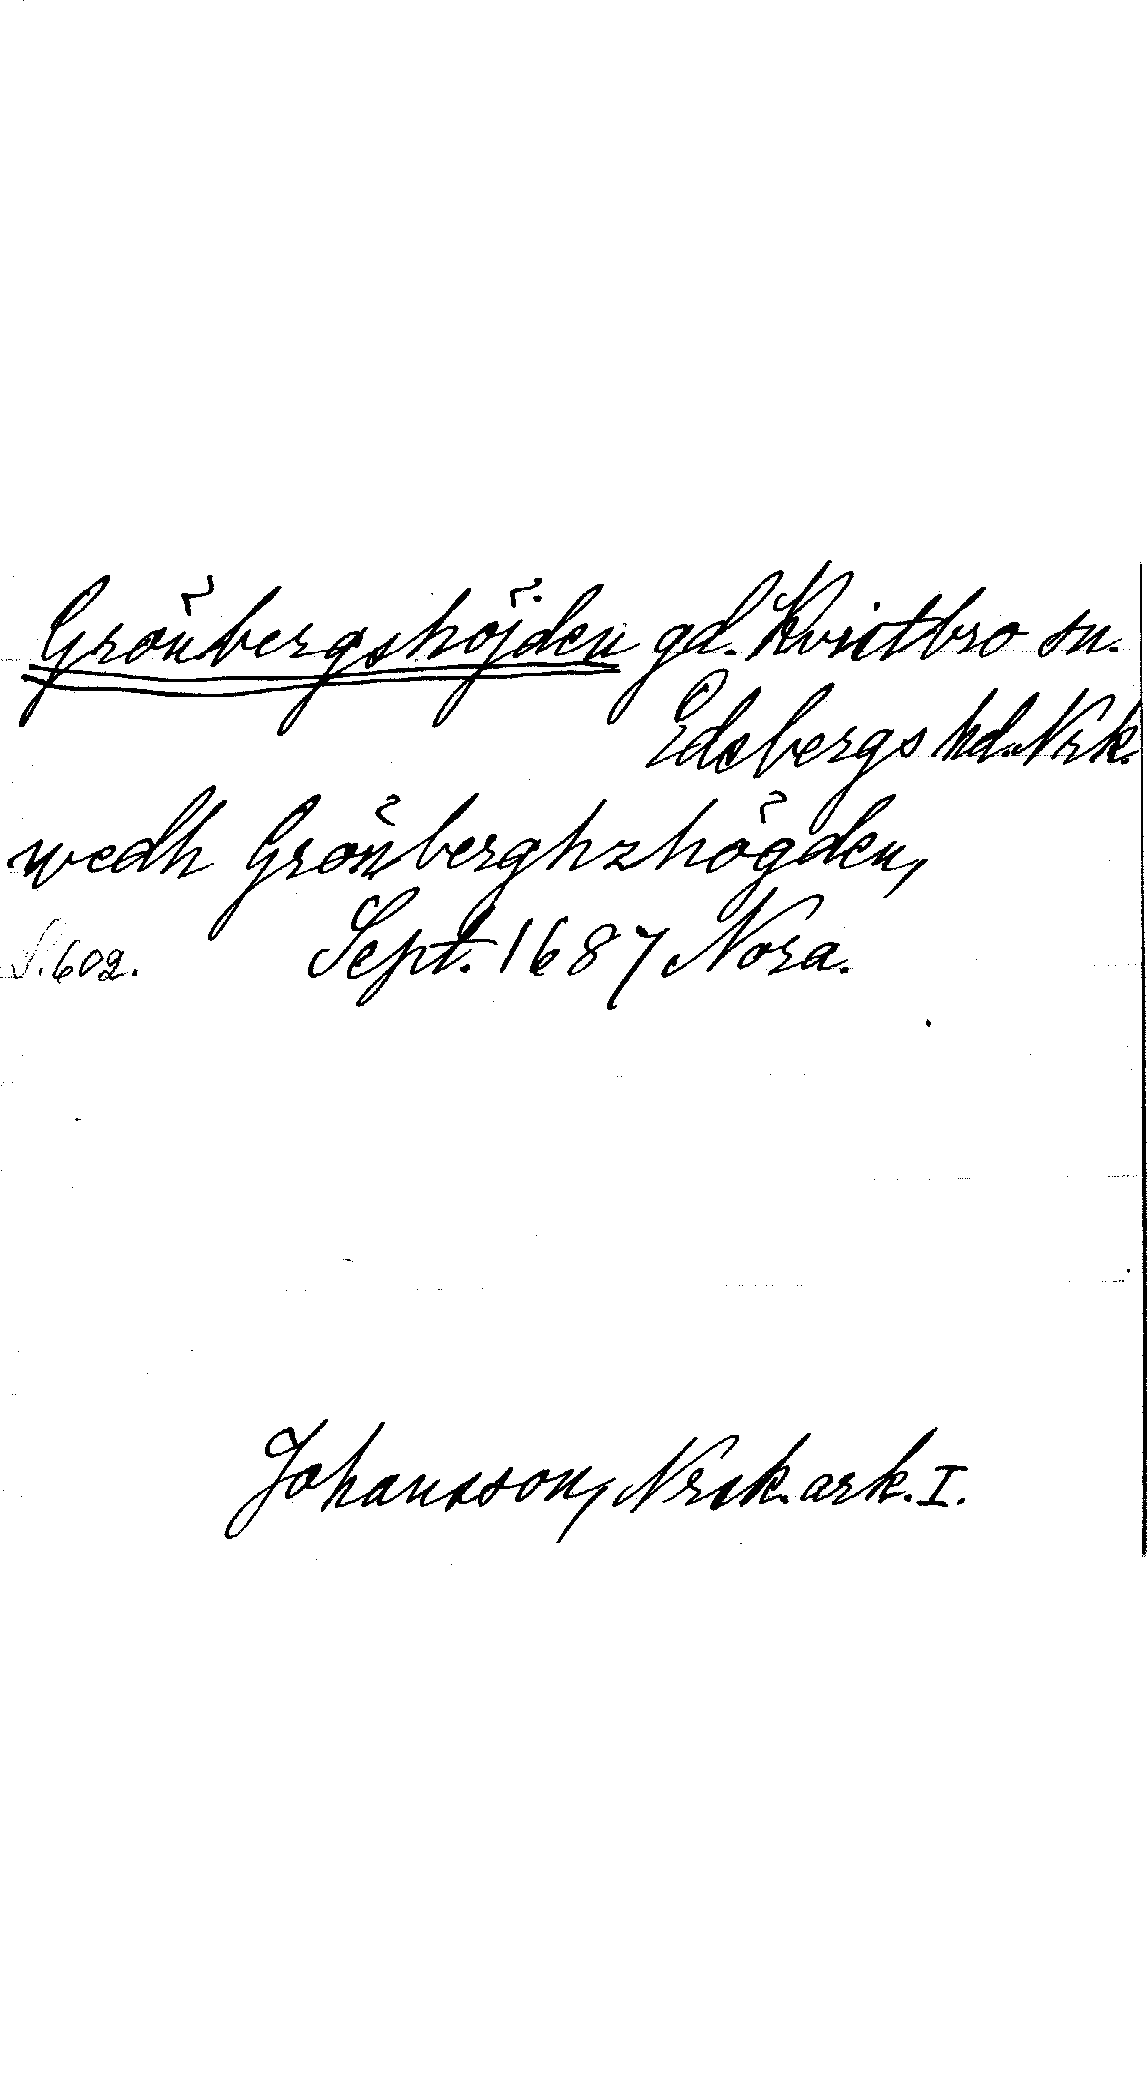 Grönbergshöjden gd. Kvistbro sn.
Edsbergs hd. Nrk.
wedh Grönberghzhögden,
S. 602. Sept. 1687 Nora.
Johansson, Nrsk. ark. I.